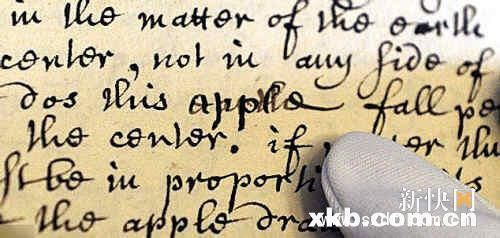 in the matter of the earth
center, not in any side of
dos this apple fall pe
the center. if
st be in proporti
the apple dra
新快网
xkb.com.cn